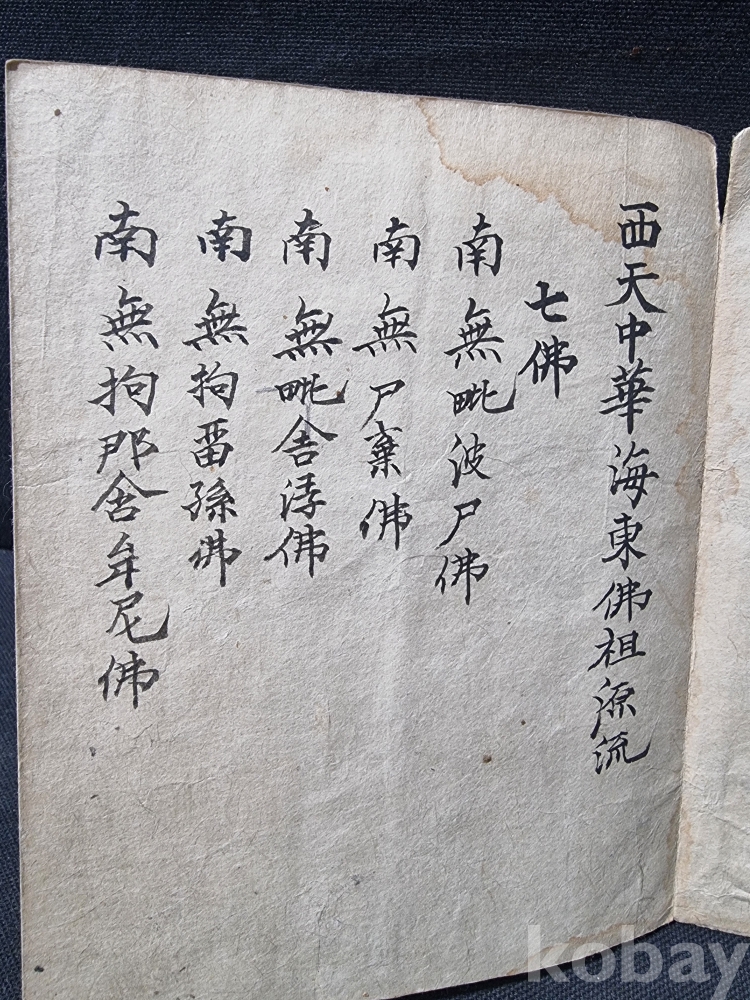 西天中華海東佛祖源流
七佛
南無毗波尸佛
南無尸棄佛
南無毗舍浮佛
南無拘留孫佛
南無拘那舍牟尼佛
kobay